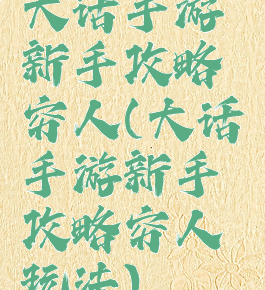 大话手游
新手攻略
穷人(大话
手游新手
攻略穷人
玩法)